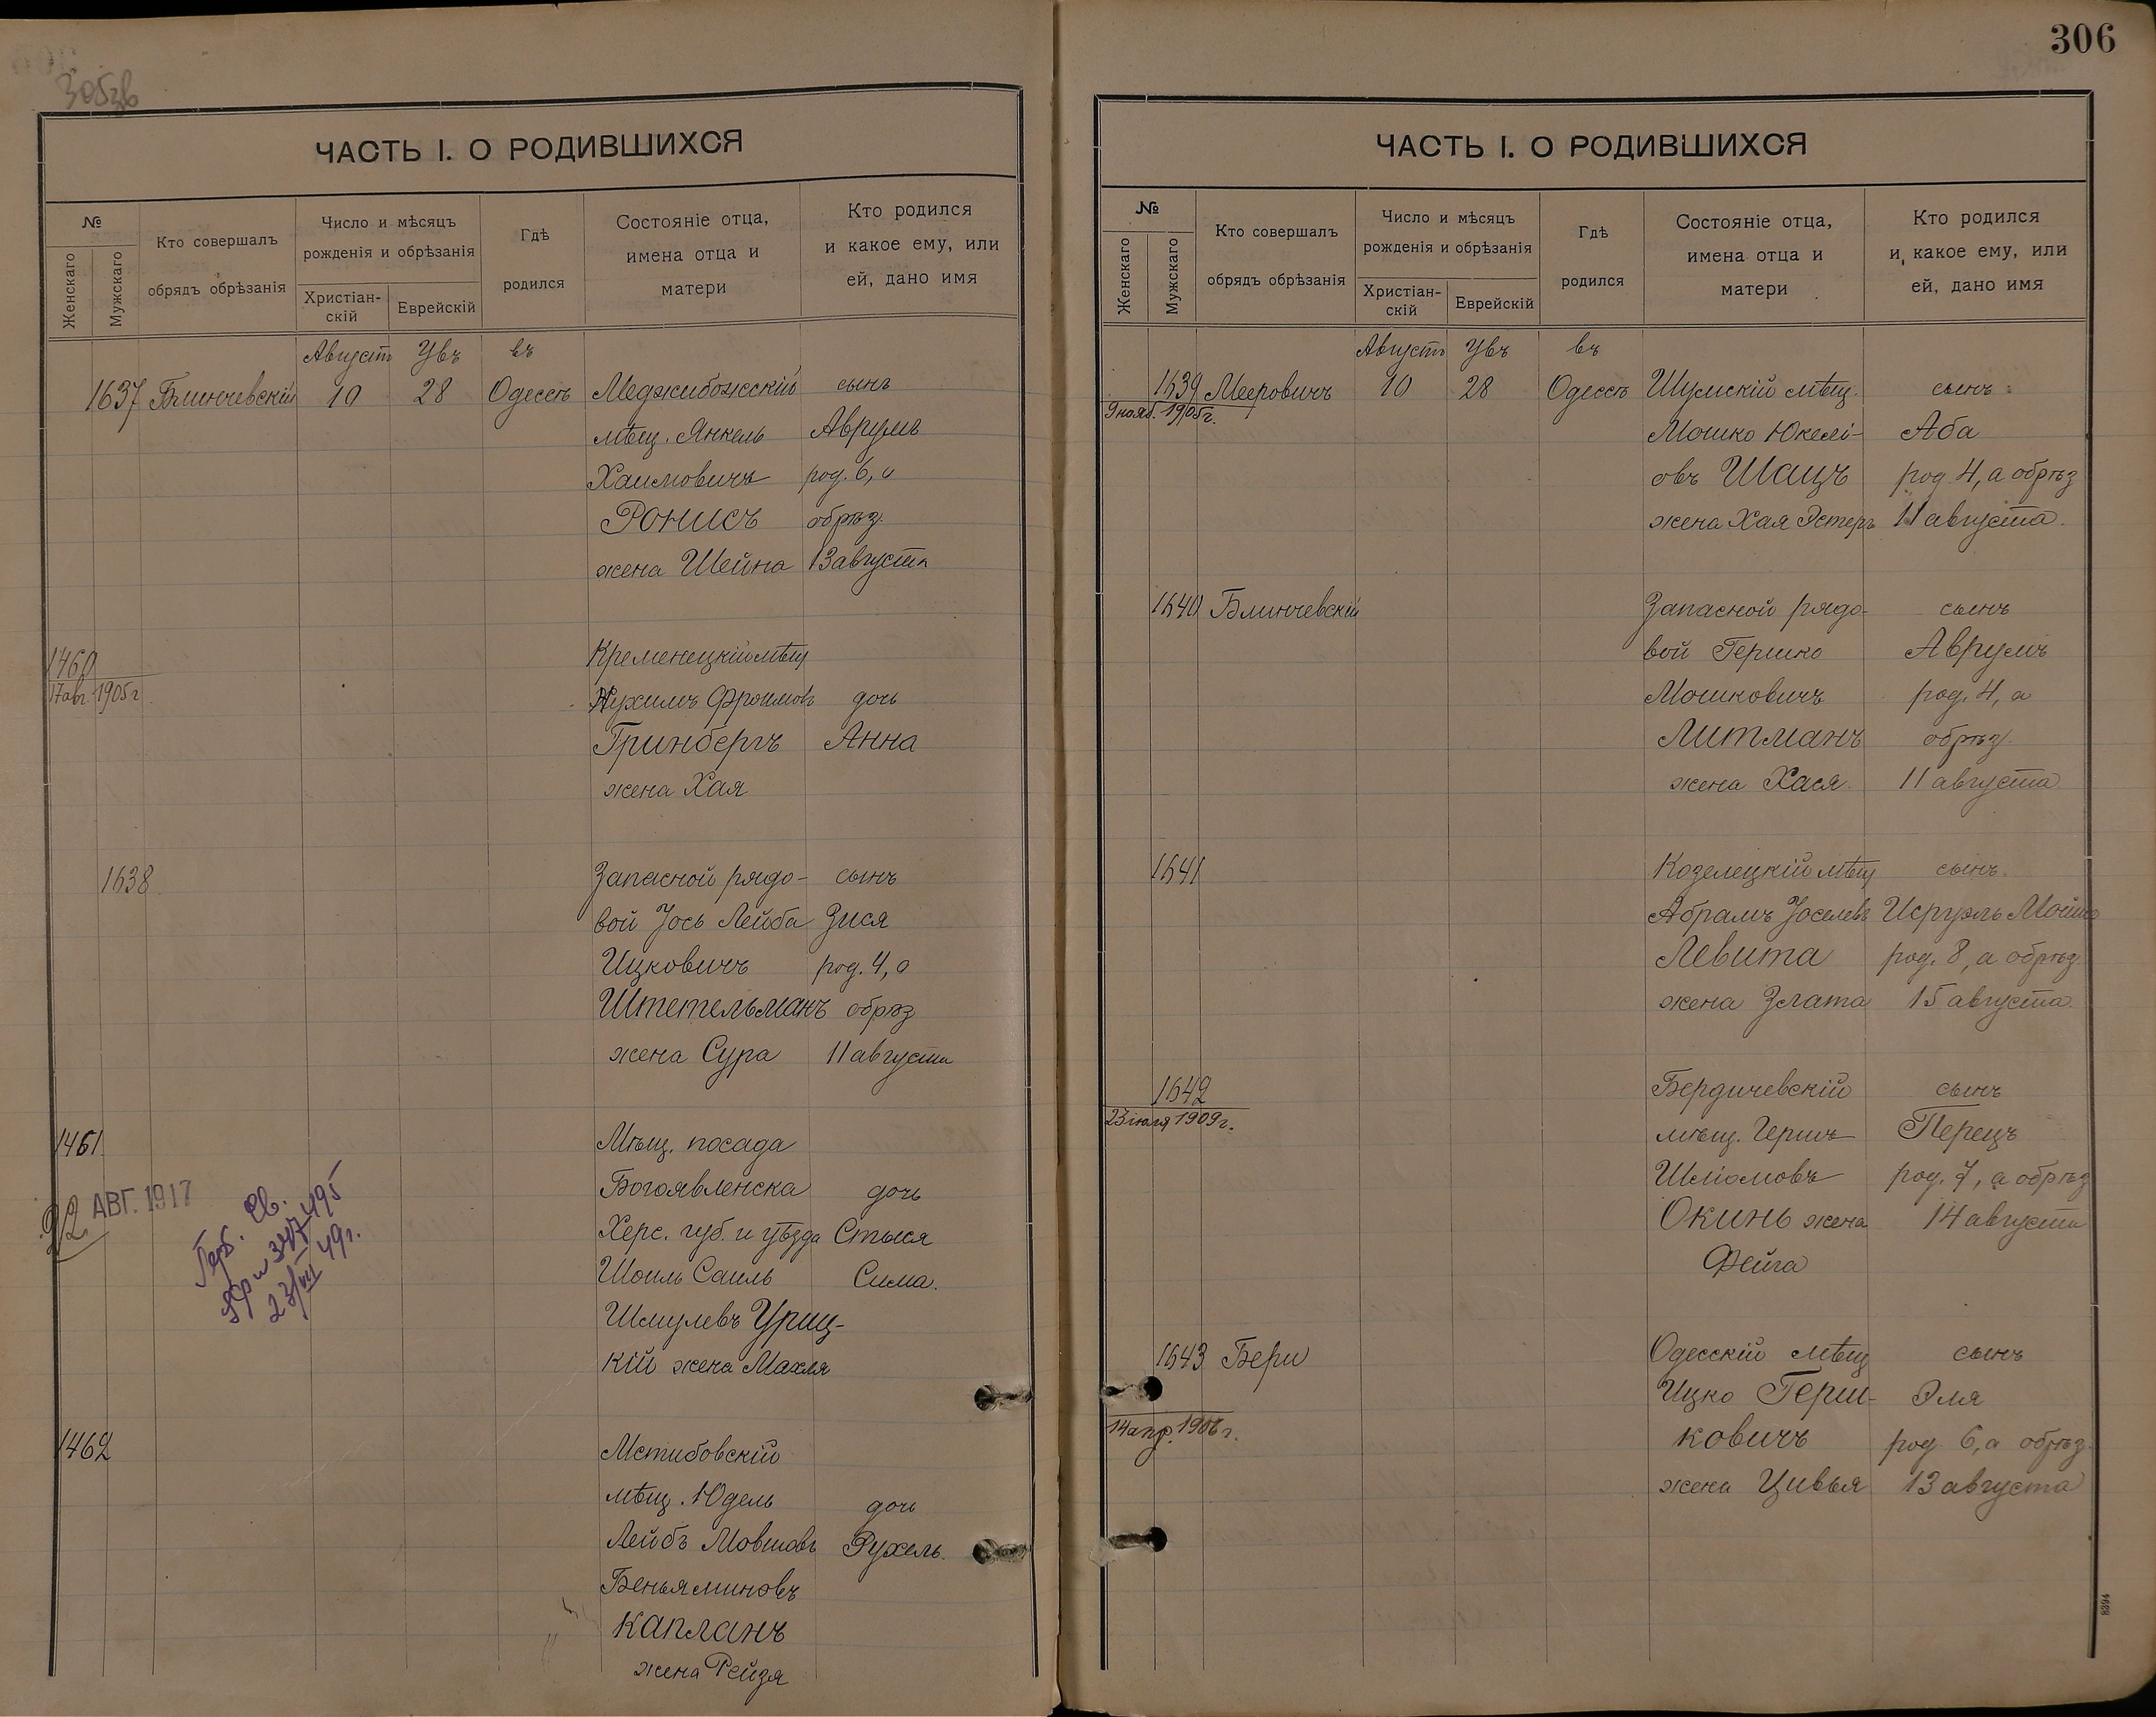 305зв
ЧАСТЬ I. О РОДИВШИХСЯ
№
Женскаго
Мужскаго
Кто совершалъ
обрядъ обрѣзанія
Число и мѣсяцъ
рожденія и обрѣзанія
Христіан-
скій
Еврейскій
Гдѣ
родился
Состояніе отца,
имена отца и
матери
Кто родился
и какое ему, или
ей, дано имя
Августъ Увъ въ
1637 Блинчевскій 10 28 Одессѣ Меджибожскій сынъ
мѣщ. Янкель Аврумъ
Хаимовичъ род. 6, а
Ронисъ обрѣз.
жена Шейна 13 августа
1460 Кременецкій мѣщ
17 авг. 1905 г Нухимъ Фроимовъ дочь
Гринбергъ Анна
жена Хая
1638 Запасной рядо- сынъ
вой Іось Лейба Зися
Ицковичъ род. 4, а
Штетельманъ обрѣз
жена Сура 11 августа
1461 Мѣщ. посада
Богоявленска дочь
22 АВГ. 1917
Херс. губ. и уѣзда Стыся
Шоиль Саиль Сима.
Шмулевъ Уриц-
кій жена Махля
Герб. Св.
23/VIII 49г.
1462 Мстибовскій
мѣщ. Юдель дочь
Лейбъ Мовшовъ Рухель.
Беньяминовъ
Капланъ
жена Рейзя
306
ЧАСТЬ I. О РОДИВШИХСЯ
№
Женскаго
Мужскаго
Кто совершалъ
обрядъ обрѣзанія
Число и мѣсяцъ
рожденія и обрѣзанія
Христіан-
скій
Еврейскій
Гдѣ
родился
Состояніе отца,
имена отца и
матери
Кто родился
и какое ему, или
ей, дано имя
Августъ Увъ въ
1639 Мееровичъ 10 28 Одессѣ Шумскій мѣщ. сынъ
9 нояб. 1905 г. Мошко Юкелі- Аба
овъ Шацъ род 4, а обрѣз
жена Хая Эстеръ 11 августа.
1640 Блинчевскій Запасной рядо- сынъ
вой Гершко Аврумъ
Мошковичъ род. 4, а
Литманъ обрѣз.
жена Хася 11 августа
1641 Козелецкій мѣщ сынъ.
Абрамъ Іоселевъ Исруэль Мошко
Левита род. 8, а обрѣз.
жена Злата 15 августа.
1642 Бердичевскій сынъ
23 іюля 1909 г. мѣщ. Гершъ Перецъ
Шліомовъ род. 7, а обрѣз
Окинь жена 14 августа
Фейга
1643 Бери Одесскій мѣщ сынъ
Ицко Герш- Эля
14 апр. 1906 г. ковичъ род 6, а обрѣз.
жена Цивья 13 августа
8394